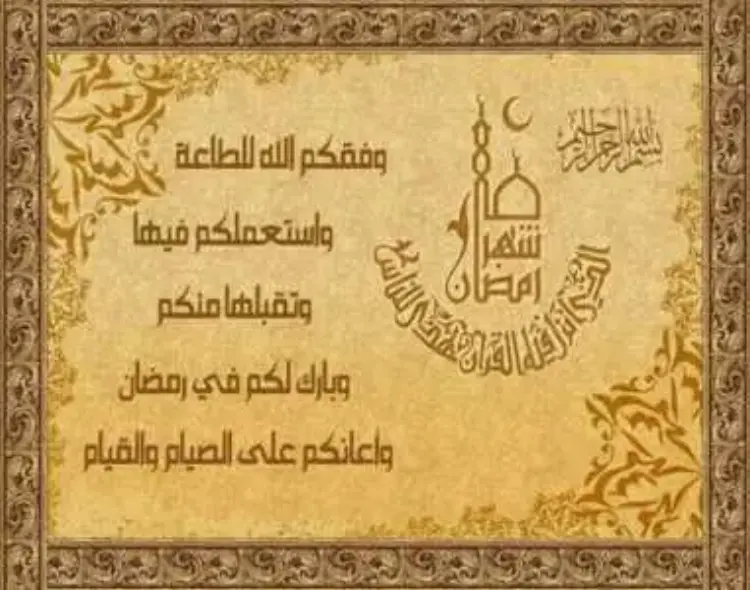 بسم الله الرحمن الرحيم
شهر
رمضان
الذي أنزل فيه القرآن هدى للناس
وفقكم الله للطاعة
واستعملكم فيها
وتقبلها منكم
وبارك لكم في رمضان
واعانكم على الصيام والقيام